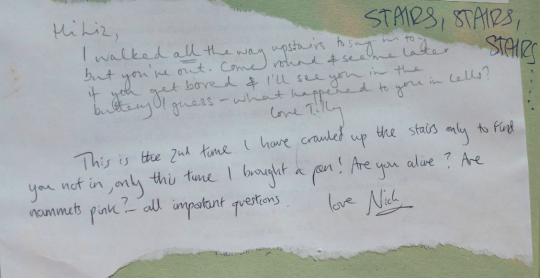 Hi Liz,
STAIRS, STAIRS,
STAIRS......
I walked all the way upstairs to say hi to
but you're out. Come round & see me later
if you get bored & I'll see you in the
buttery I guess – what happened to you in Cells?
Love Tilly
This is the 2nd time I have crawled up the stairs only to find
you not in, only this time I brought a pen! Are you alive? Are
mammets pink? – all important questions.
love Nick